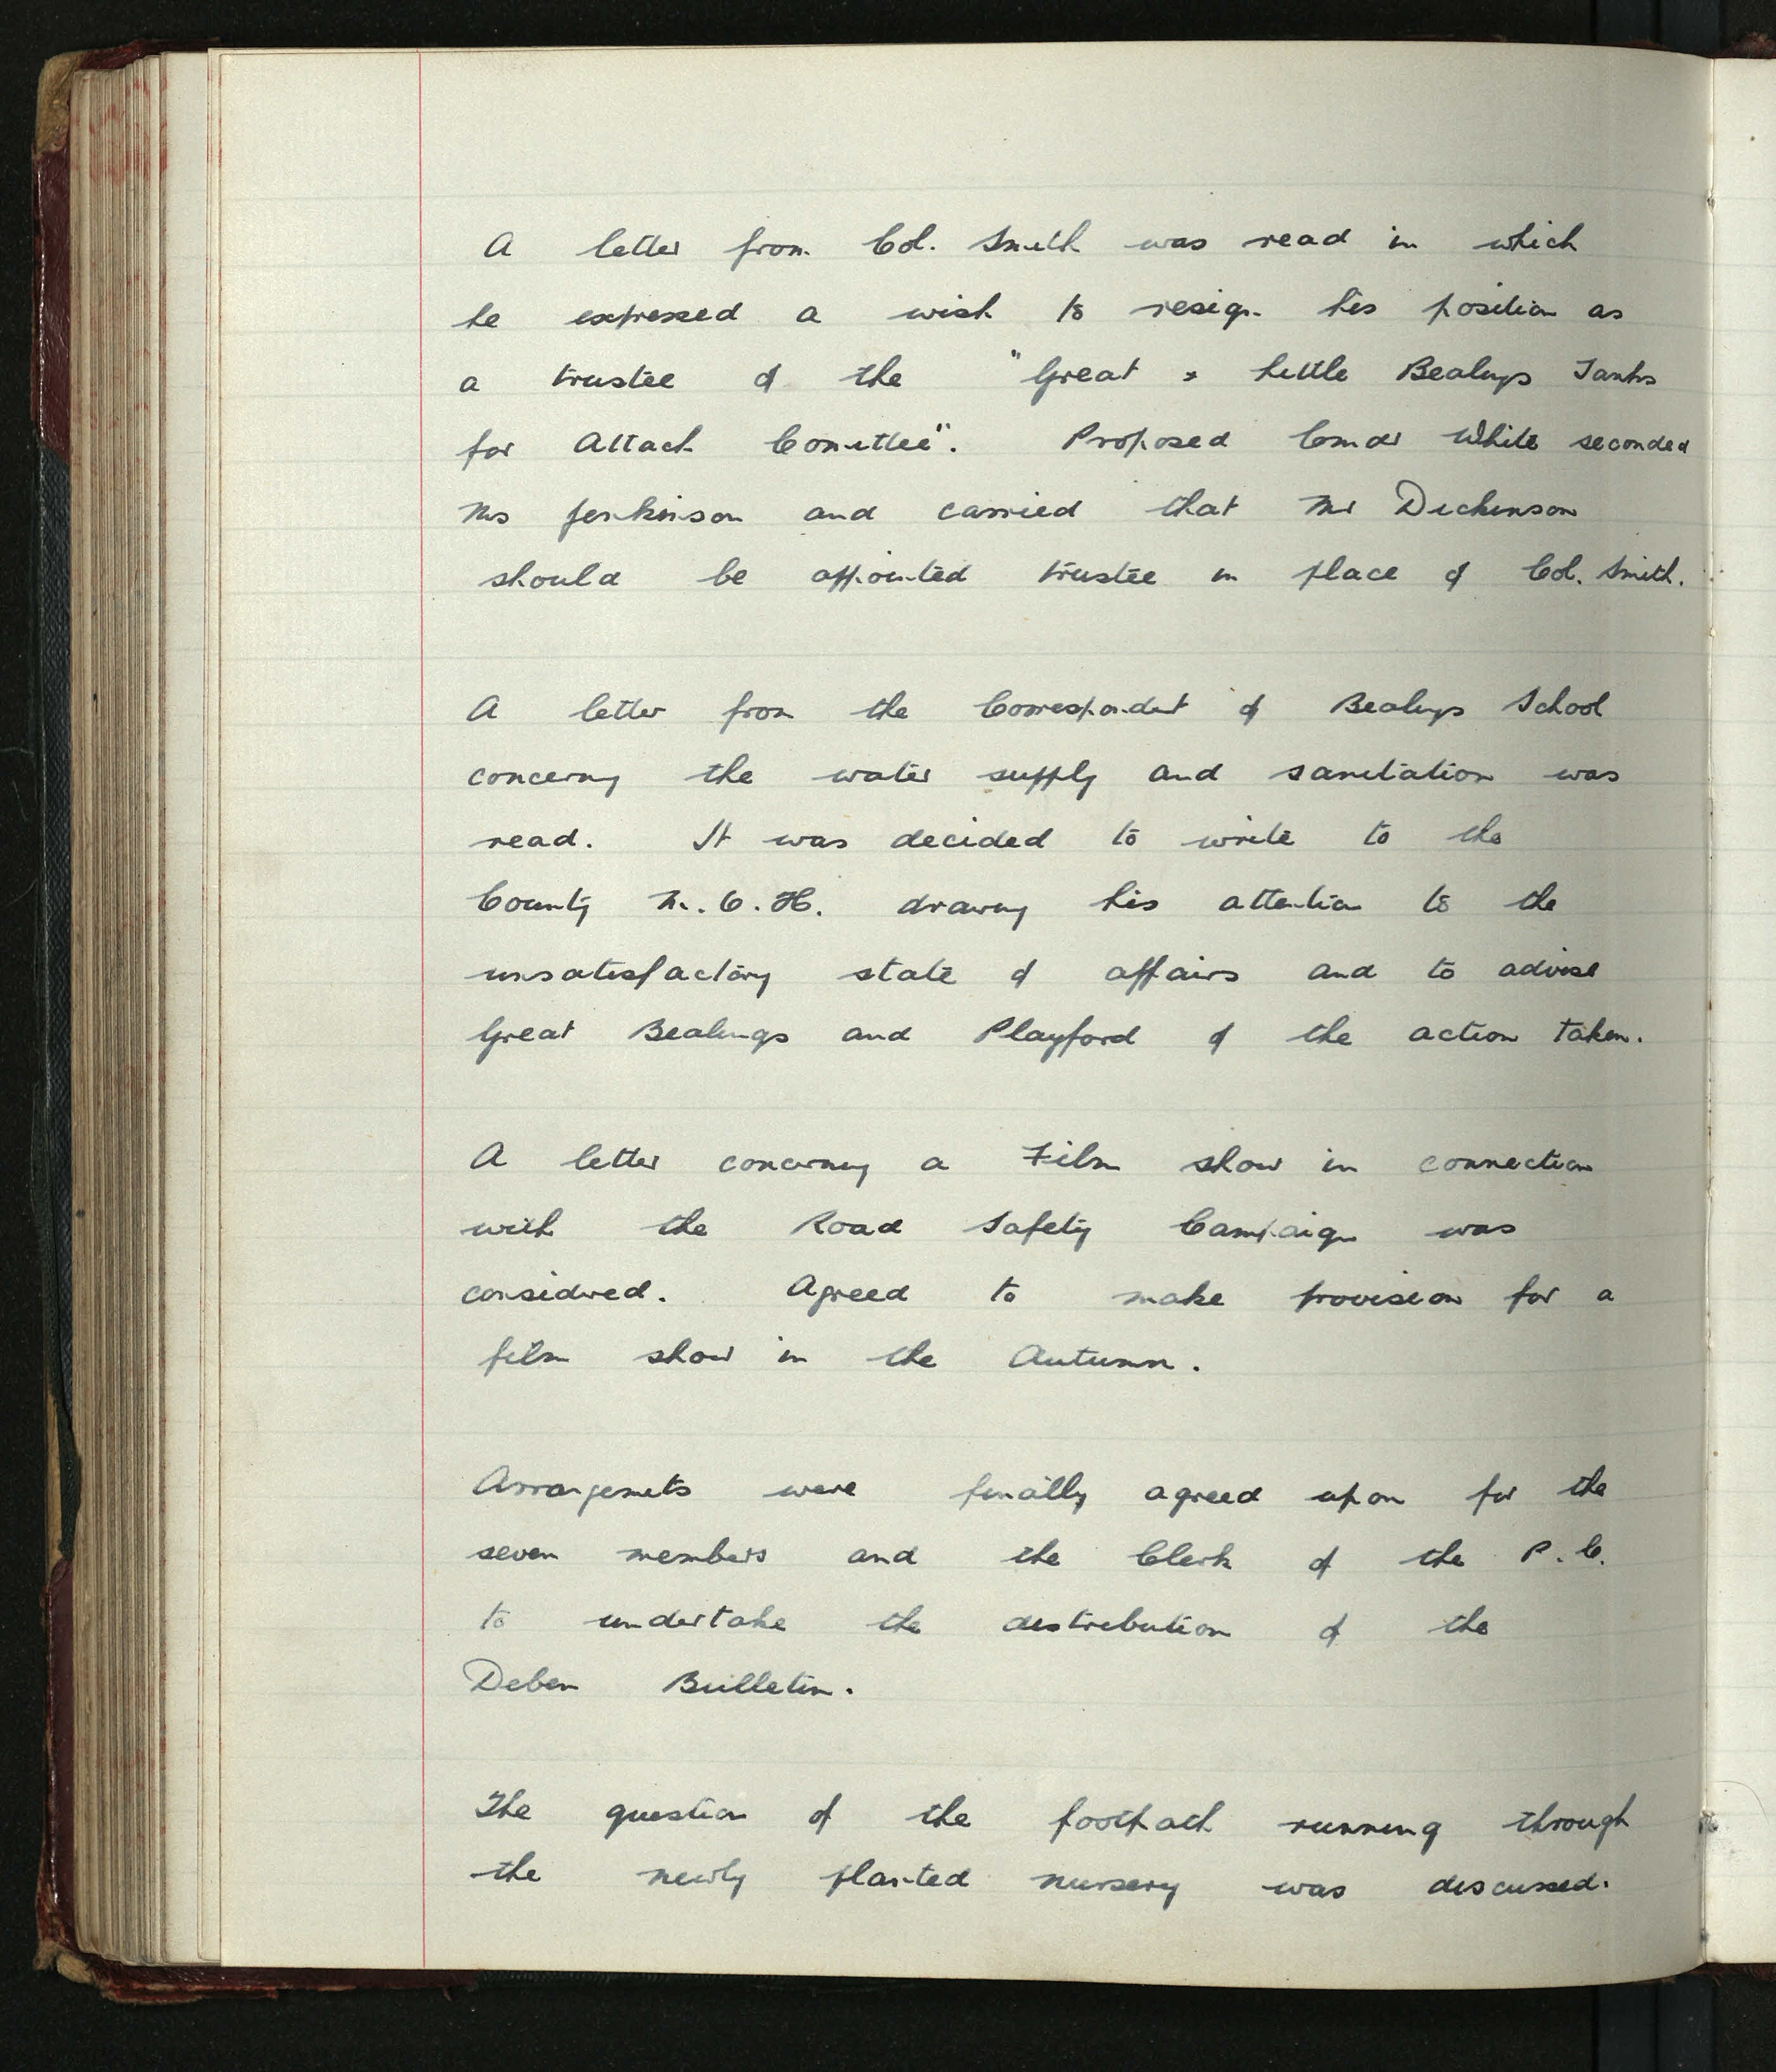 A letter from Col. Smith was read in which
he expressed a wish to resign his position as
a trustee of the "Great & Little Bealings Tanks
for Attack Comittee". Proposed Comdr White seconded
Mrs Jenkinson and carried that Mr Dickinson
should be appointed trustee in place of Col. Smith.
A letter from the Correspondent of Bealings School
concerning the water supply and sanitation was
read. It was decided to write to the
County M.O.H. drawing his attention to the
unsatisfactory state of affairs and to advise
Great Bealings and Playford of the action taken.
A letter concerning a Film show in connection
with the Road Safety Campaign was
considered. Agreed to make provision for a
film show in the Autumn.
Arrangements were finally agreed upon for the
seven members and the Clerk of the P.C.
to undertake the distribution of the
Deben Bulletin.
The question of the footpath running through
the newly planted nursery was discussed.